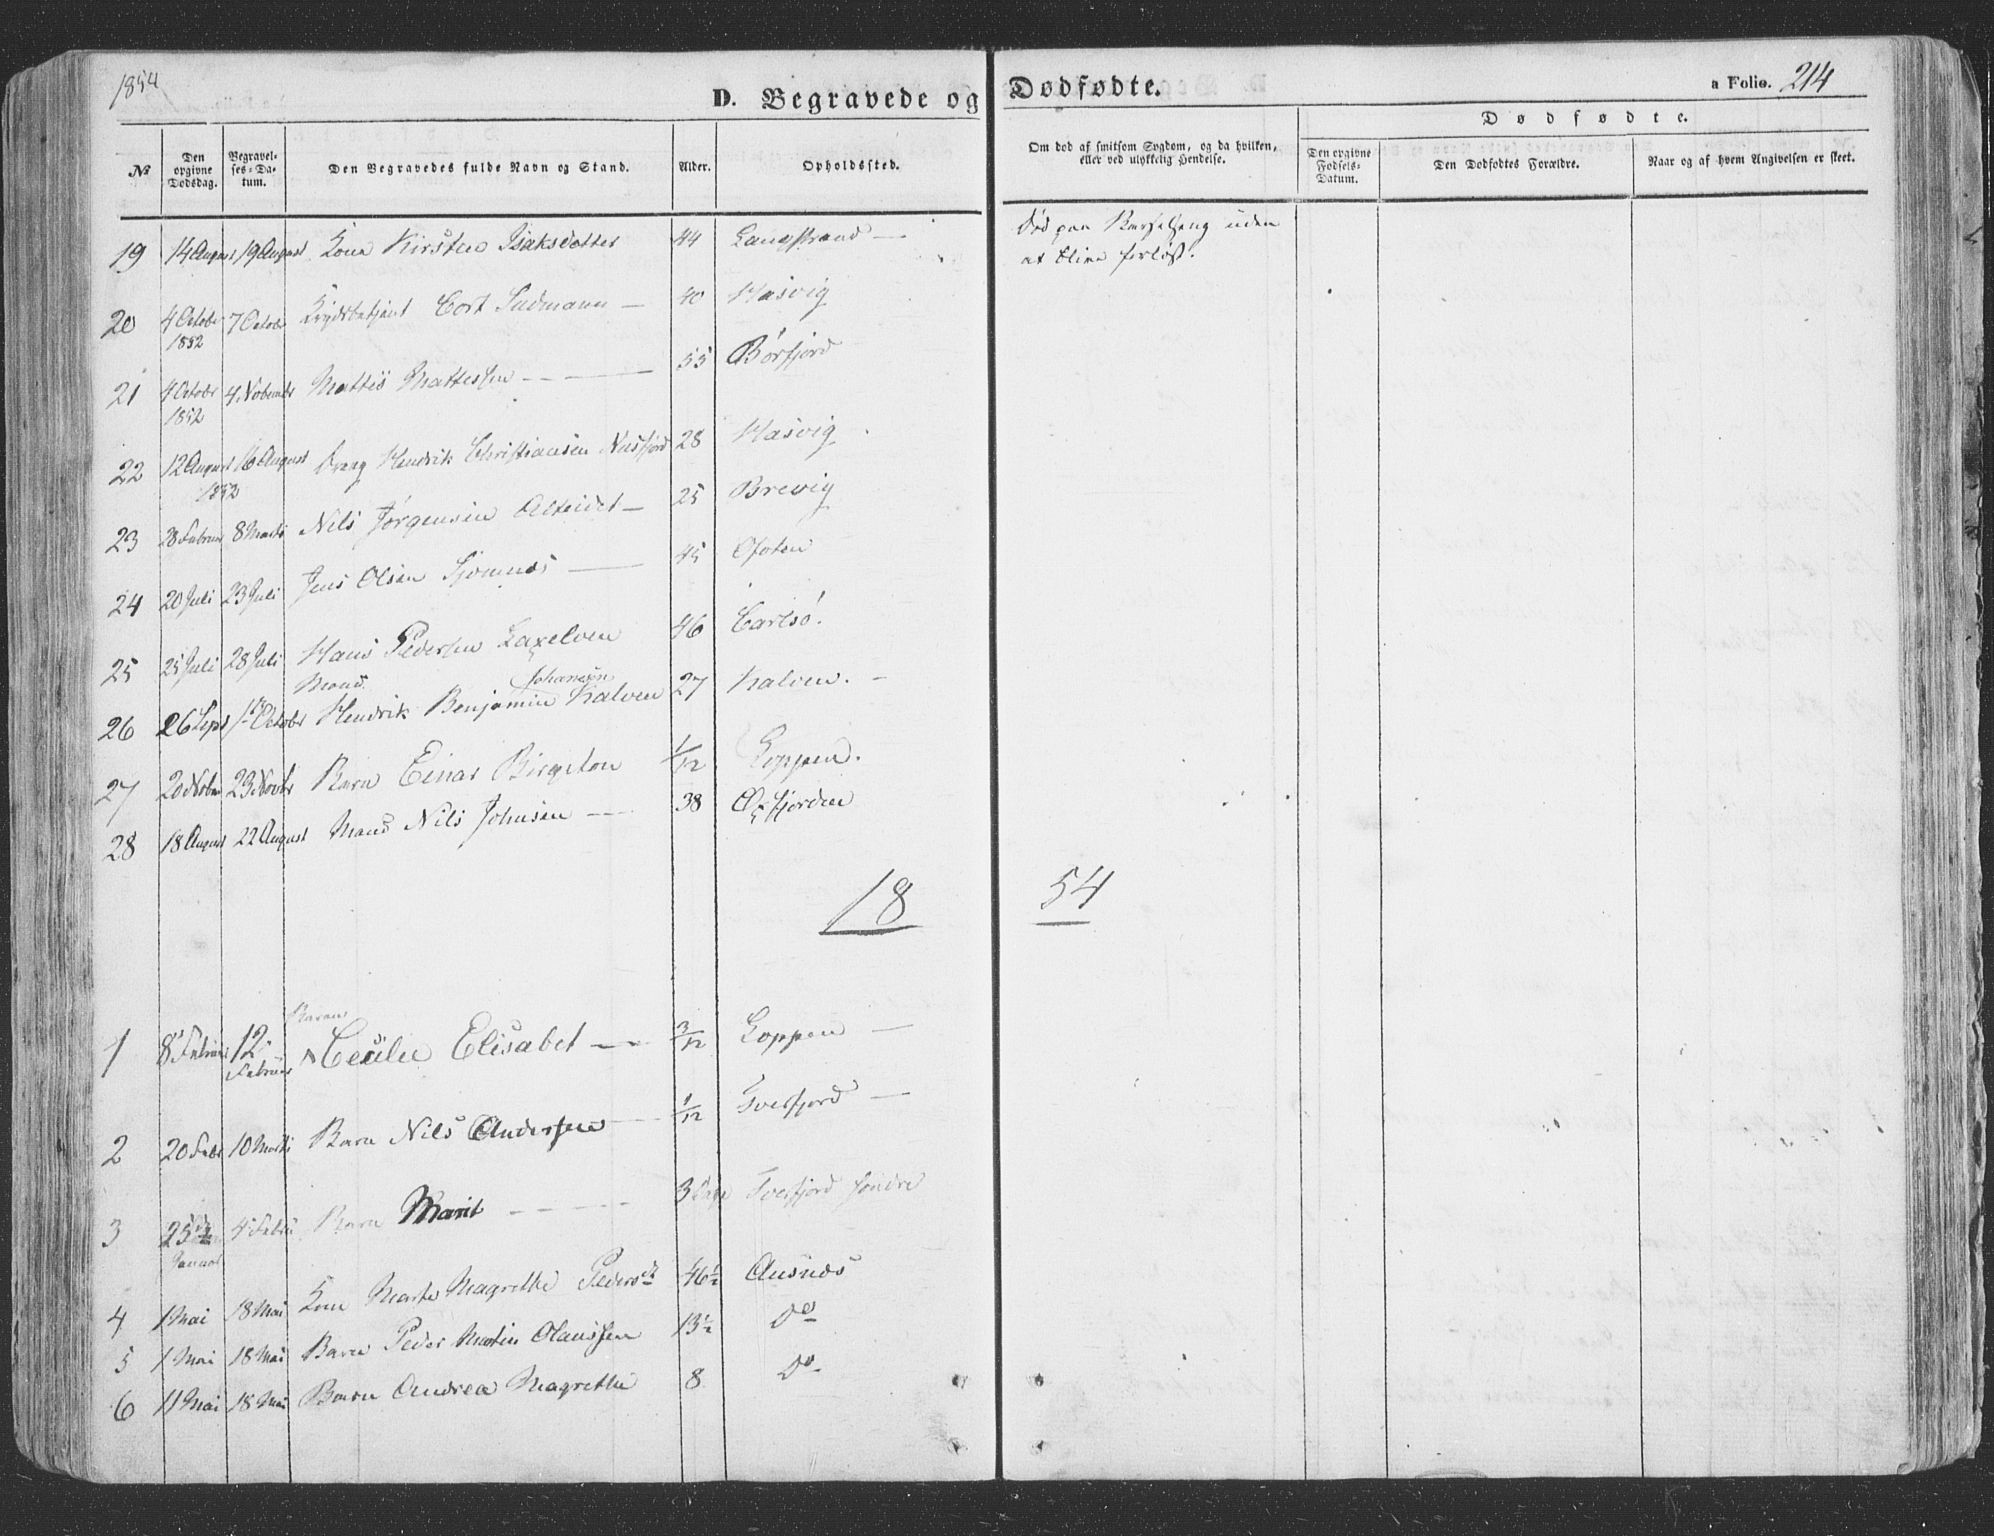 1854
D. Begravede og Dødfødte.
a Folio. 214
No
Den opgivne Dødsdag.
Begravelses-Datum.
Den Begravedes fulde Navn og Stand.
Alder.
Opholdssted.
Om død af smitsom Sygdom, og da hvilken, eller ved ulykkelig Hendelse.
Dødfødte.
Den opgivne Fødsels-Datum.
Den Dødfødtes Forældre.
Naar og af hvem Angivelsen er skeet.
19 14 August 19 August Kone Kirsten Isaksdotter 44 Langstrand —
Død paa Barselseng uden
at blive forløst.
20 4 October 1852 7 October Cort Sudmann — 40 Hasvig
21 4 October 1852 4 November Mattis Mattessen — 55 Børfjord
22 12 August 1852 16 August Dreng Hendrik Christiansen Nusfjord 28 Hasvig
23 28 Februar 8 Marts Nils Jørgensen Alteidet — 25 Brevig
24 20 Juli 23 Juli Jens Olsen 45 Ofoten
25 25 Juli 28 Juli Hans Pedersen Laxelven 46 Carlsö.
26 26 Sept 1 October Mand Hendrik Benjamin Johansen Kalven 27 Kalven. —
27 20 Novbr 23 Novbr Barn Einar 1/12 Loppen.
28 18 August 22 August Mand Nils Johnsen — 38 Øxfjorden
18 54
1 8 Februar 12 Februar Barn Cecilie Elisabet — 3/12 Loppen —
2 20 Febr 10 Marts Barn Nils Andersen — 1/12 Tverfjord —
3 25 Januar 4 Febr Barn Marit — 3 Dage Tverfjord søndre
4 1 Mai 18 Mai Kone Marte Magrethe Pedersd 46 1/2 Ausnæs
5 1 Mai 18 Mai Barn Peder Martin Olaussen 13 1/2 Do
6 11 Mai 18 Mai Barn Andrea Magrethe 8 Do